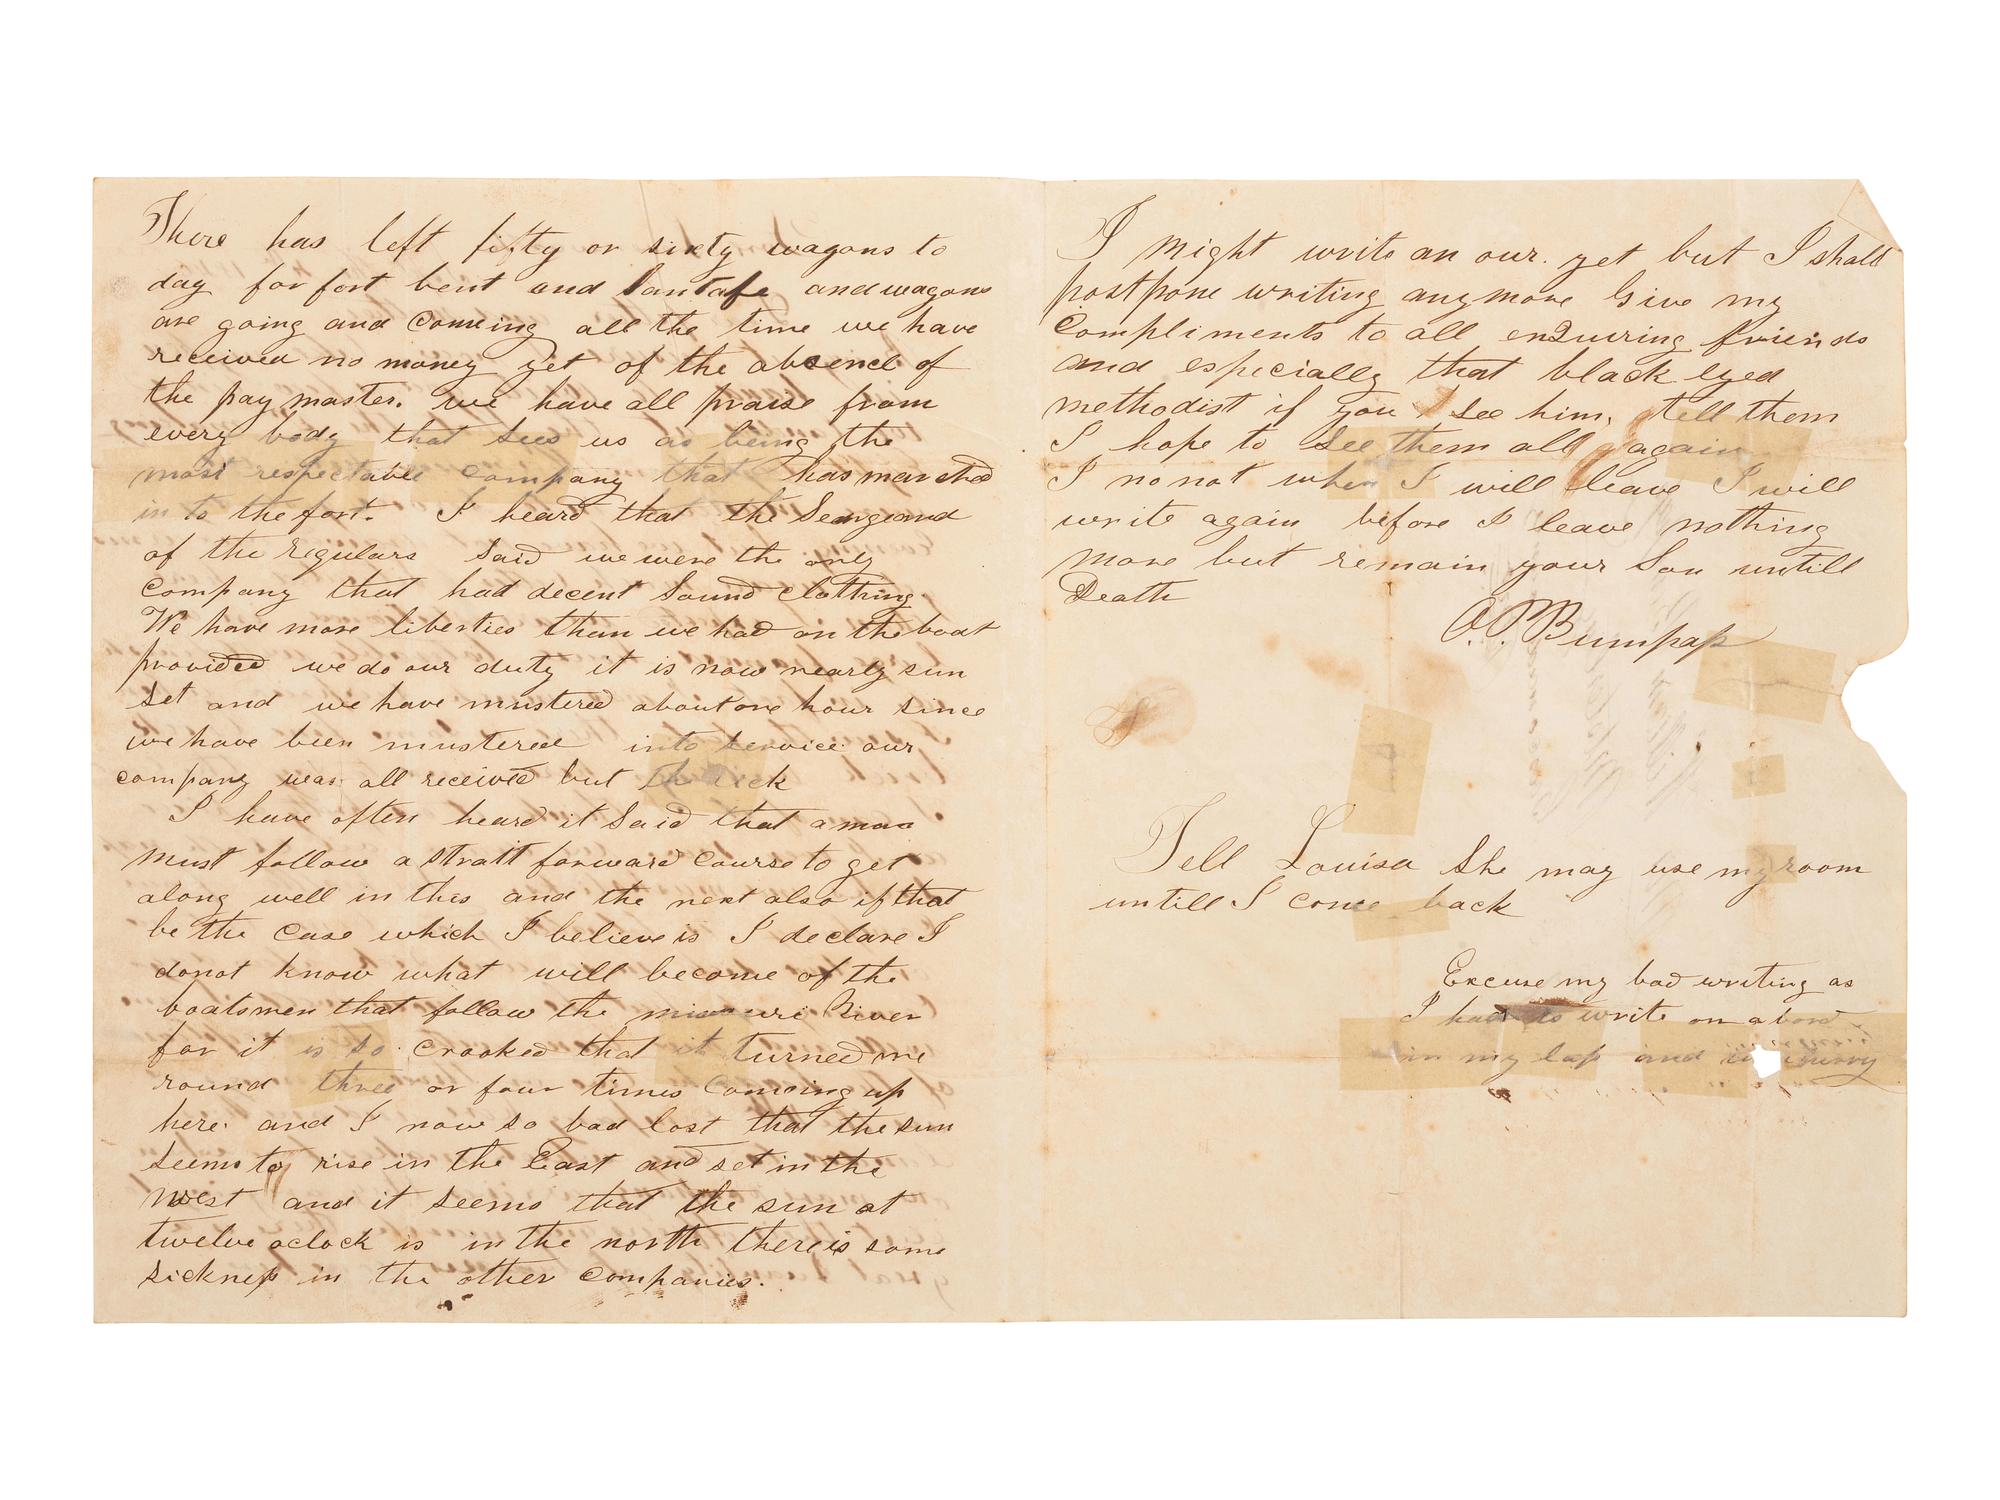 There has left fifty or sixty wagons to
day for fort bent and Santafe and wagons
are going and Comeing all the time we have
received no money yet of the absence of
the pay master. we have all praise from
every body that sees us as being the
most respectable company that has marched
in to the fort. I heard that the Seargeand
of the regulars said we were the only
company that had decent Sound clothing.
We have more liberties than we had on the boat
provided we do our duty it is now nearly sun
set and we have mustered about one hour since
we have been mustered into service our
company was all received but the sick
I have often heard it Said that a man
must follow a stratt forward course to get
along well in this and the next also if that
be the case which I believe is I declare I
donot know what will become of the
boatsmen that follow the missouri River
for it is so crooked that it turned me
round three or four times Comeing up
here and I now so bad lost that the sun
seems to rise in the East and set in the
west and it seems that the sun at
twelve oclock is in the north there is some
sickness in the other companies.
I might write an our. yet but I shall
postpone writing anymore Give my
Compliments to all enquiring friends
and especially that black eyed
methodist if you see him, tell them
I hope to see them all again
I no not when I will leave I will
write again before I leave nothing
more but remain your Son untill
Death
O. P. Bumpass
Tell Louisa She may use my room
untill I come back
Excuse my bad writing as
I had to write on a bord
in my lap and in a hurry